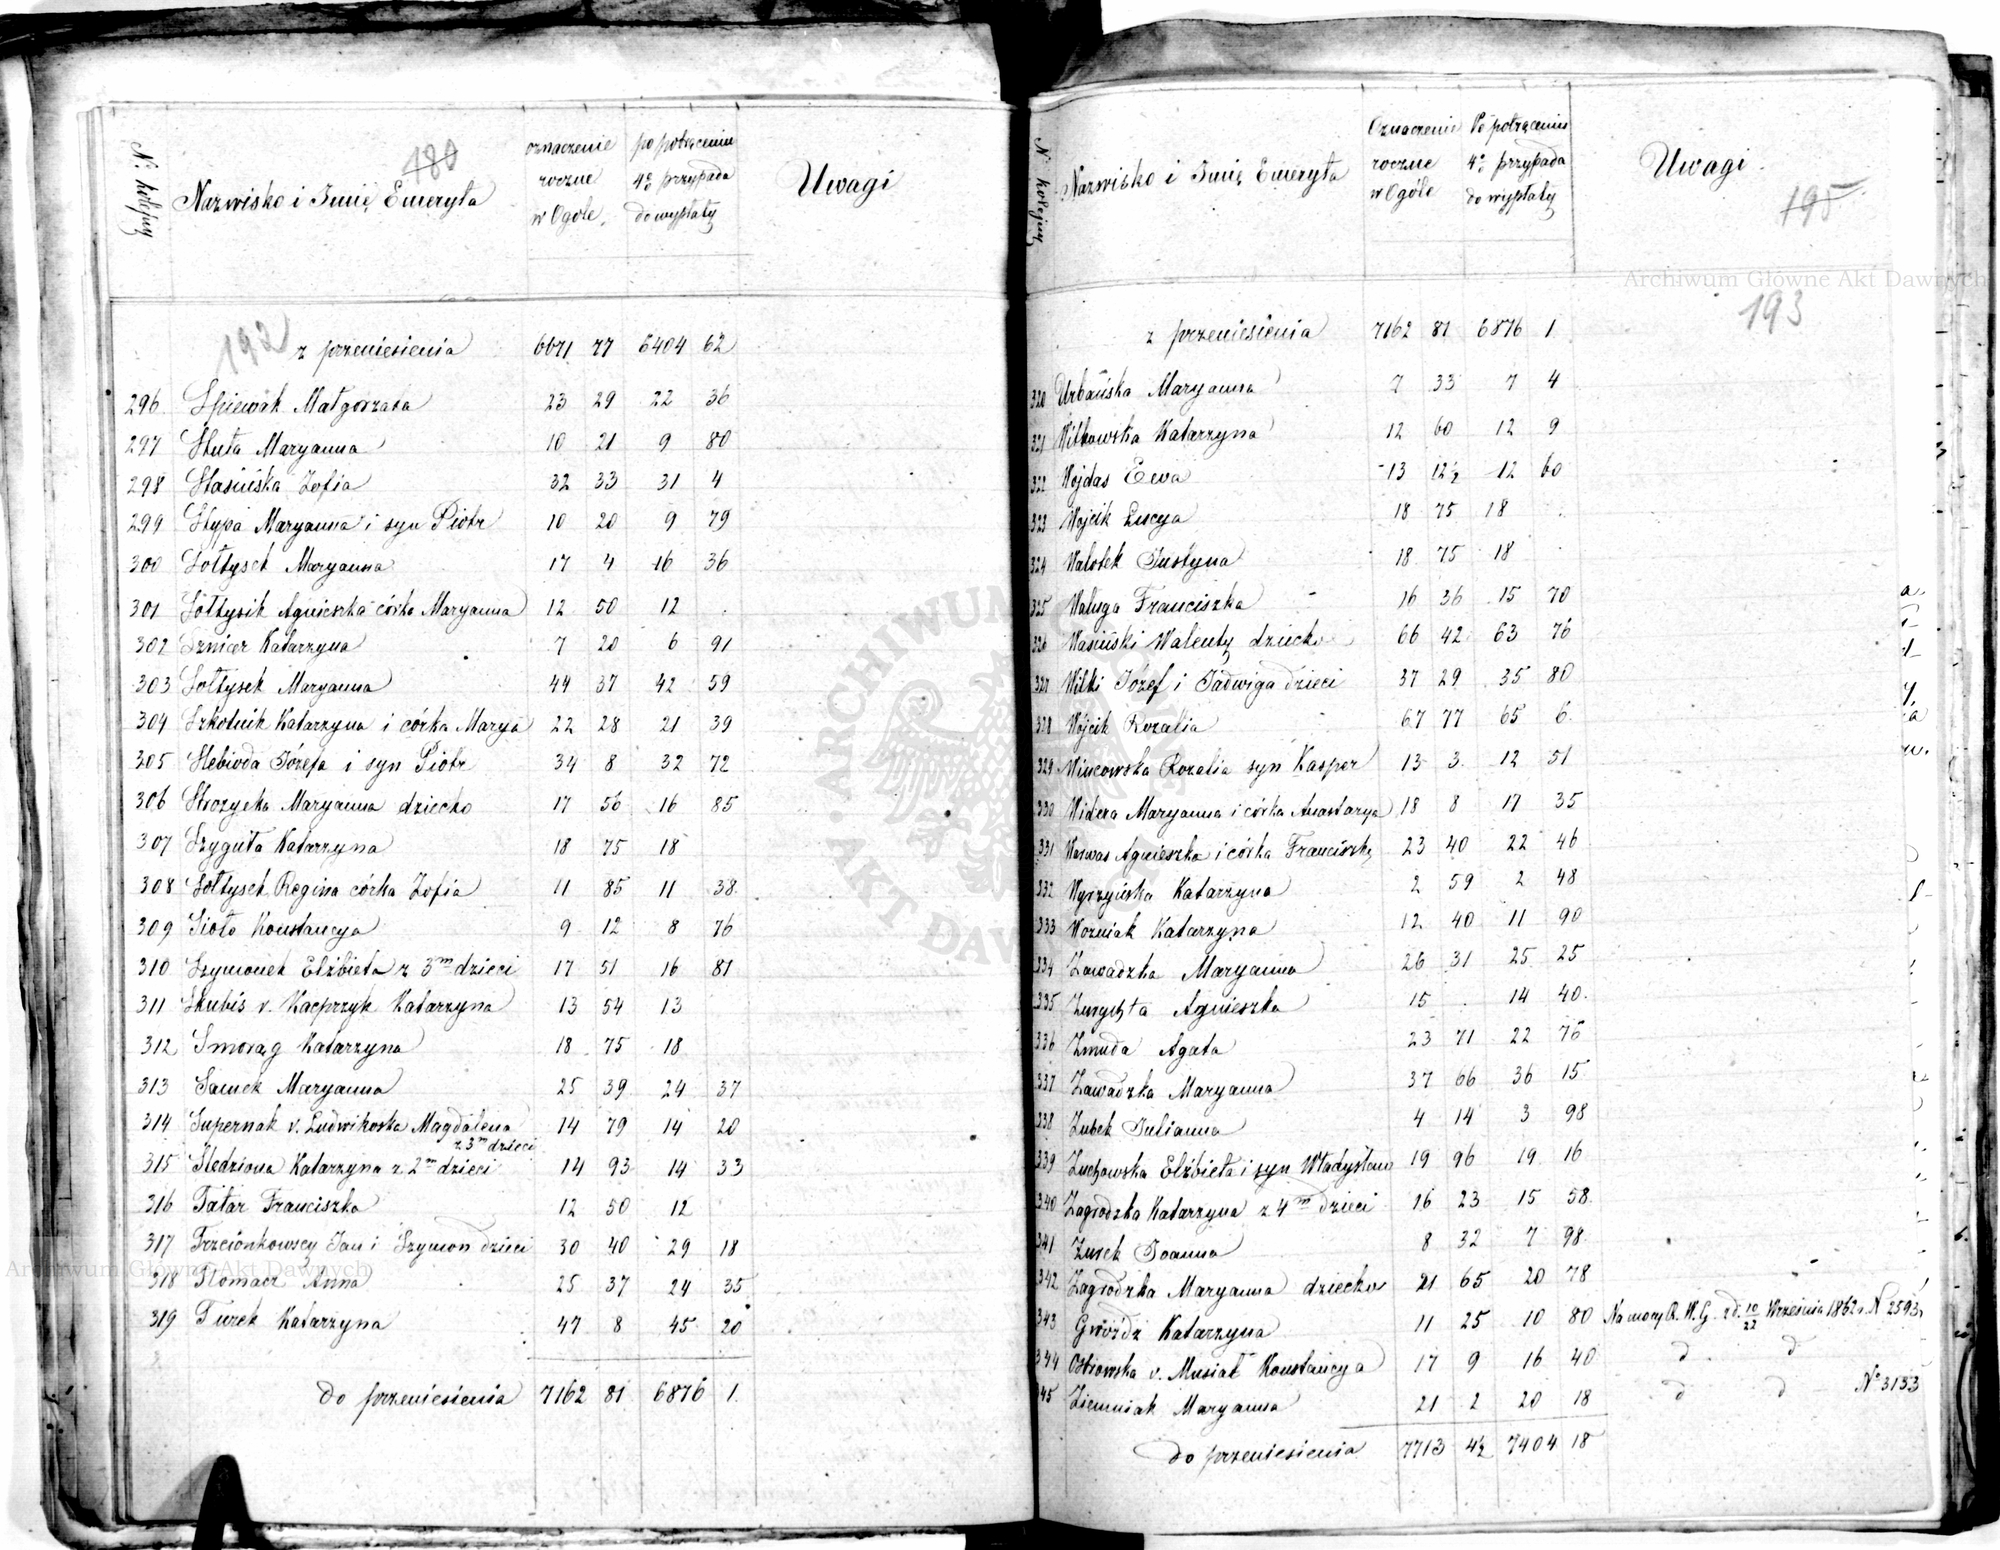 N<sup>o</sup> kolejny
Nazwisko i Imię Emeryta
180
oznaczenie roczne w Ogóle
po potrąceniu 4% przypada do wypłaty
Uwagi
192
z przeniesienia 6671 77 6404 62
296 Śpiewak Małgorzata 23 29 22 36
297 Stuła Maryanna 10 21 9 80
298 Stasińska Zofia 32 33 31 4
299 Stypa Maryanna i syn Piotr 10 20 9 79
300 Sołtysek Maryanna 17 4 16 36
301 Sołtysik Agnieszka córka Maryanna 12 50 12 .
302 Sznicer Katarzyna 7 20 6 91
303 Sołtysek Maryanna 44 37 42 59
304 Szkolnik Katarzyna i córka Marya 22 28 21 39
305 Stebioda Józefa i syn Piotr 34 8 32 72
306 Maryanna dziecko 17 56 16 85
307 Szyguła Katarzyna 18 75 18
308 Sołtysek Regina córka Zofia 11 85 11 38
309 Sioło Konstancya 9 12 8 76
310 Szymonek Elżbieta z 3<sup>m</sup> dzieci 17 51 16 81
311 Skubis v. Kacprzyk Katarzyna 13 54 13
312 Smorąg Katarzyna 18 75 18
313 Samek Maryanna 25 39 24 37
314 Supernak v. Ludwikoska Magdalena 14 79 14 20
z 3<sup>m</sup> dzieci
315 Śledziona Katarzyna z 2<sup>m</sup> dzieci 14 93 14 33
316 Tatar Franciszka 12 50 12
317 Trzcionkowscy Jan i Szymon dzieci 30 40 29 18
318 Tłomacz Anna 25 37 24 35
319 Turek Katarzyna 47 8 45 20
do przeniesienia 7162 81 6876 1
N<sup>o</sup> kolejny
Nazwisko i Imię Emeryta
Oznaczenie roczne w Ogóle
Po potrąceniu 4% przypada do wypłaty
Uwagi
195
Archiwum Główne Akt Dawnych
193
z przeniesienia 7162 81 6876 1
320 Urbańska Maryanna 7 33 7 4
321 Witkowska Katarzyna 12 60 12 9
322 Wojdas Ewa 13 12½ 12 60
323 Wójcik Łucya 18 75 18 .
324 Walotek Justyna 18 75 18 .
325 Waluga Franciszka 16 36 15 70
326 Wasiński Walenty dziecko 66 42 63 76
327 Wilki Józef i Jadwiga dzieci 37 29 35 80
328 Wójcik Rozalia 67 77 65 6
329 Wincowska Rozalia syn Kasper 13 3 12 51
330 Widera Maryanna i córka Anastazya 18 8 17 35
331 Warwas Agnieszka i córka Franciszka 23 40 22 46
332 Katarzyna 2 59 2 48
333 Woźniak Katarzyna 12 40 11 90
334 Zawadzka Maryanna 26 31 25 25
335 Agnieszka 15 . 14 40
336 Zmuda Agata 23 71 22 76
337 Zawadzka Maryanna 37 66 36 15
338 Zubek Julianna 4 14 3 98
339 Żuchowska Elżbieta i syn Władysław 19 96 19 16
340 Zagrodzka Katarzyna z 4<sup>m</sup> dzieci 16 23 15 58
341 Żurek Joanna 8 32 7 98
342 Zagrodzka Maryanna dziecko 21 65 20 78
343 Gwóźdź Katarzyna 11 25 10 80 Na mocy R. W. G. z d. 10/22 Września 1862 r. N 2593
344 Ostrowska v. Musiał Konstancya 17 9 16 40 d d
345 Ziemniak Maryanna 21 2 20 18 d d N<sup>o</sup> 3133
do przeniesienia 7713 4½ 7404 18
ARCHIWUM GŁÓWNE AKT DAWNYCH
Archiwum Główne Akt Dawnych